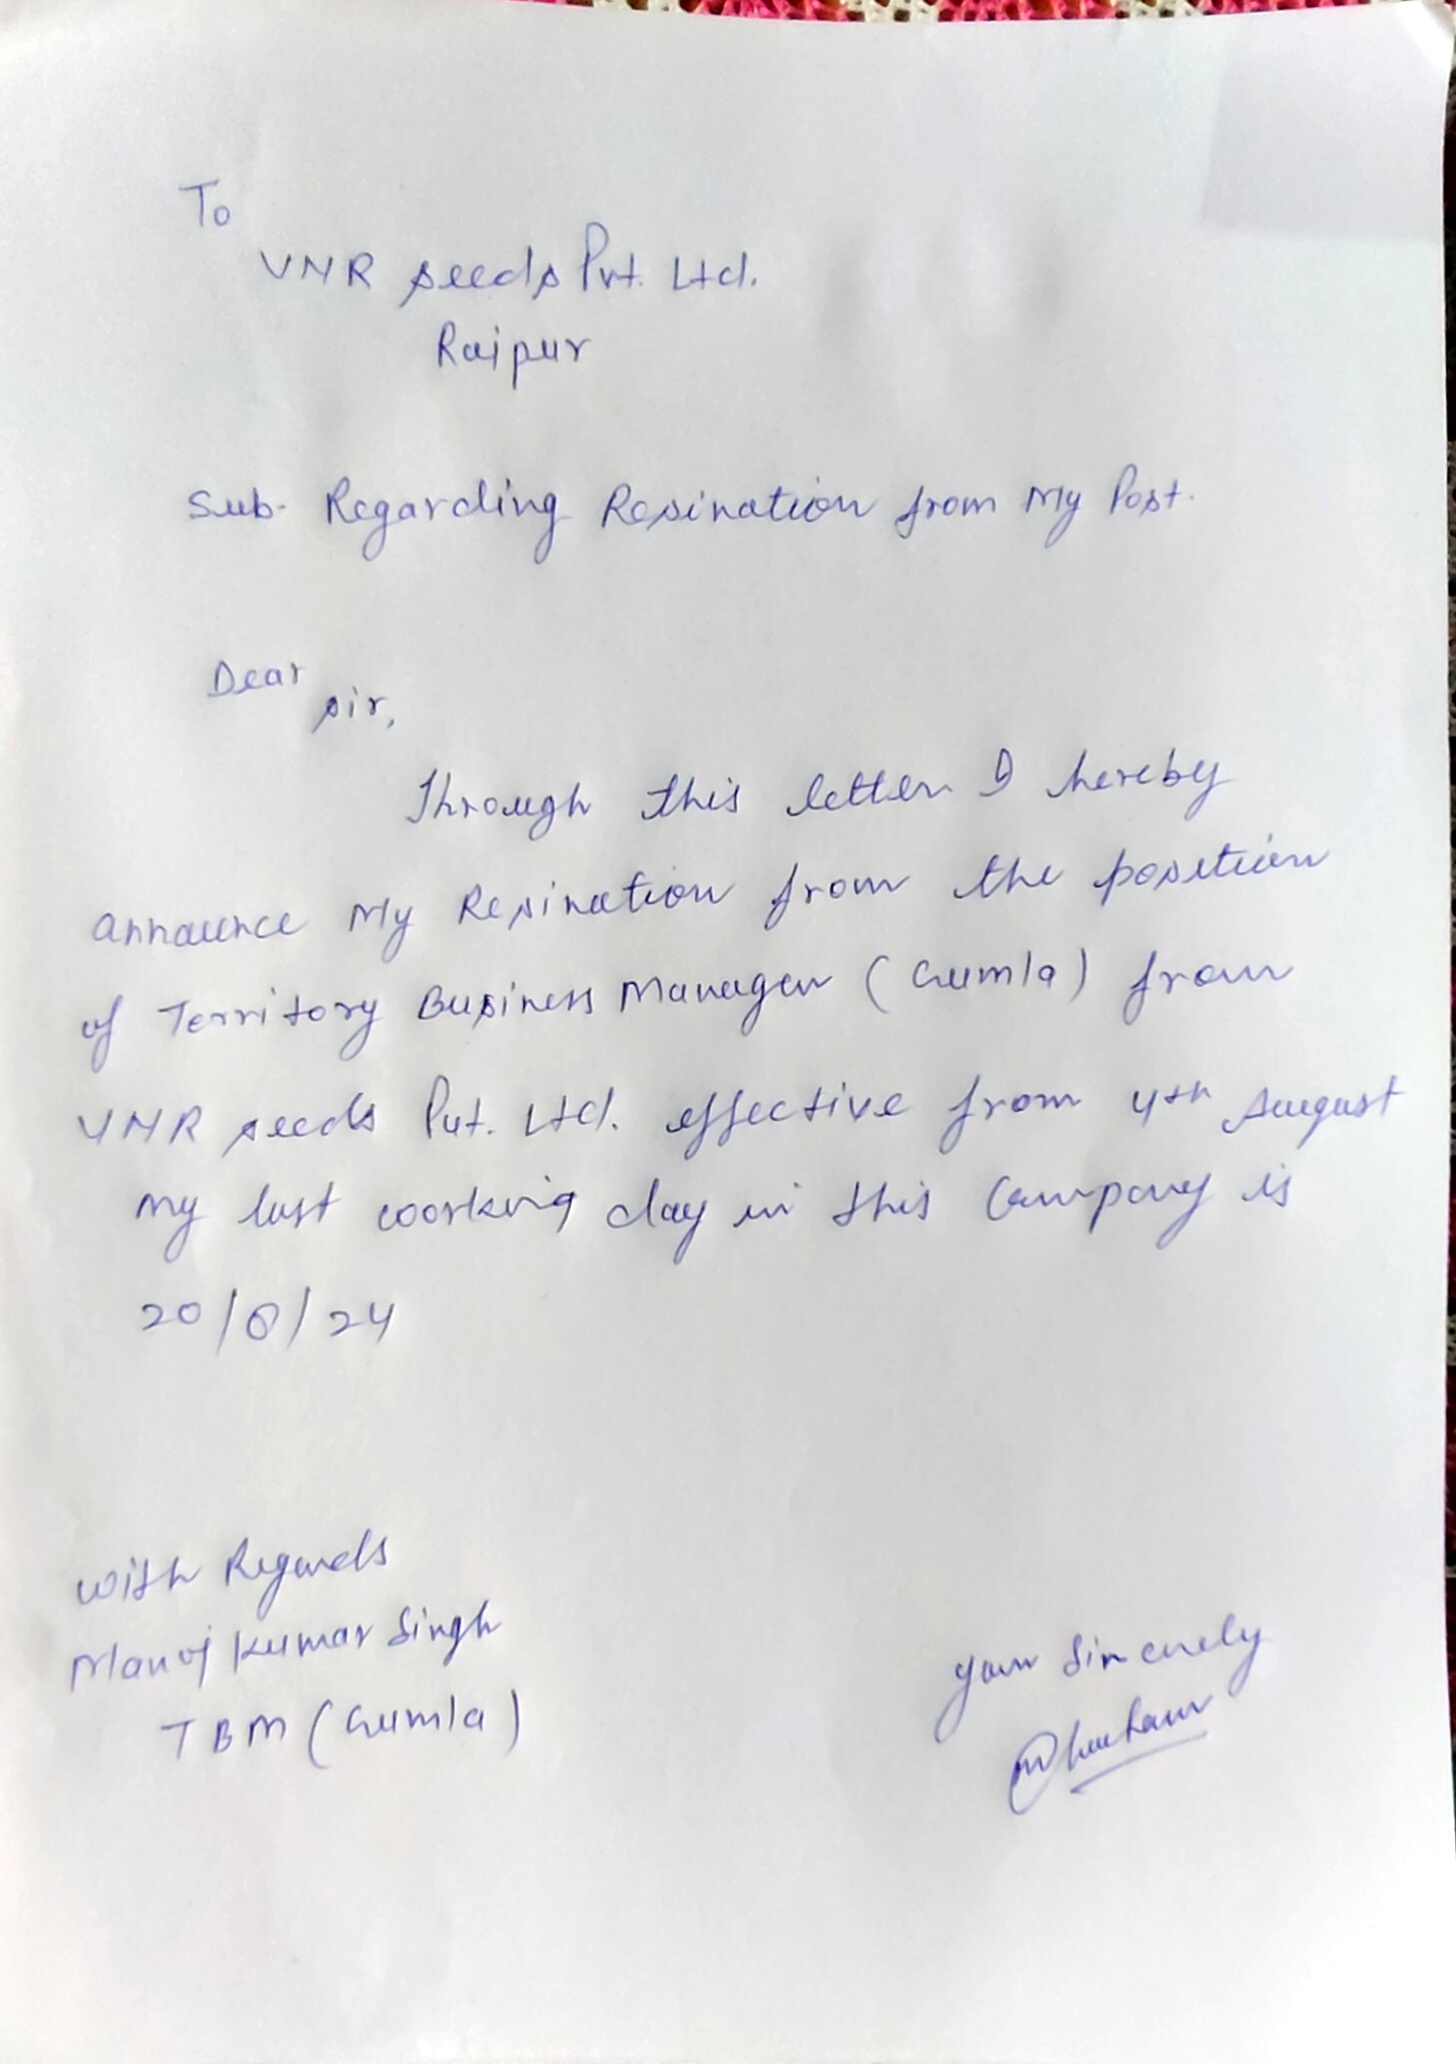 To
VNR seeds Pvt. Ltd.
Raipur
Sub- Regarding Resination from My Post.
Dear
sir,
Through this letter I hereby
announce My Resination from the position
of Territory Business Manager (Gumla) from
VNR seeds Pvt. Ltd. effective from 4th August
my last working day in this Company is
20/8/24
with Regards
Manoj Kumar Singh
TBM (Gumla)
your Sincerely